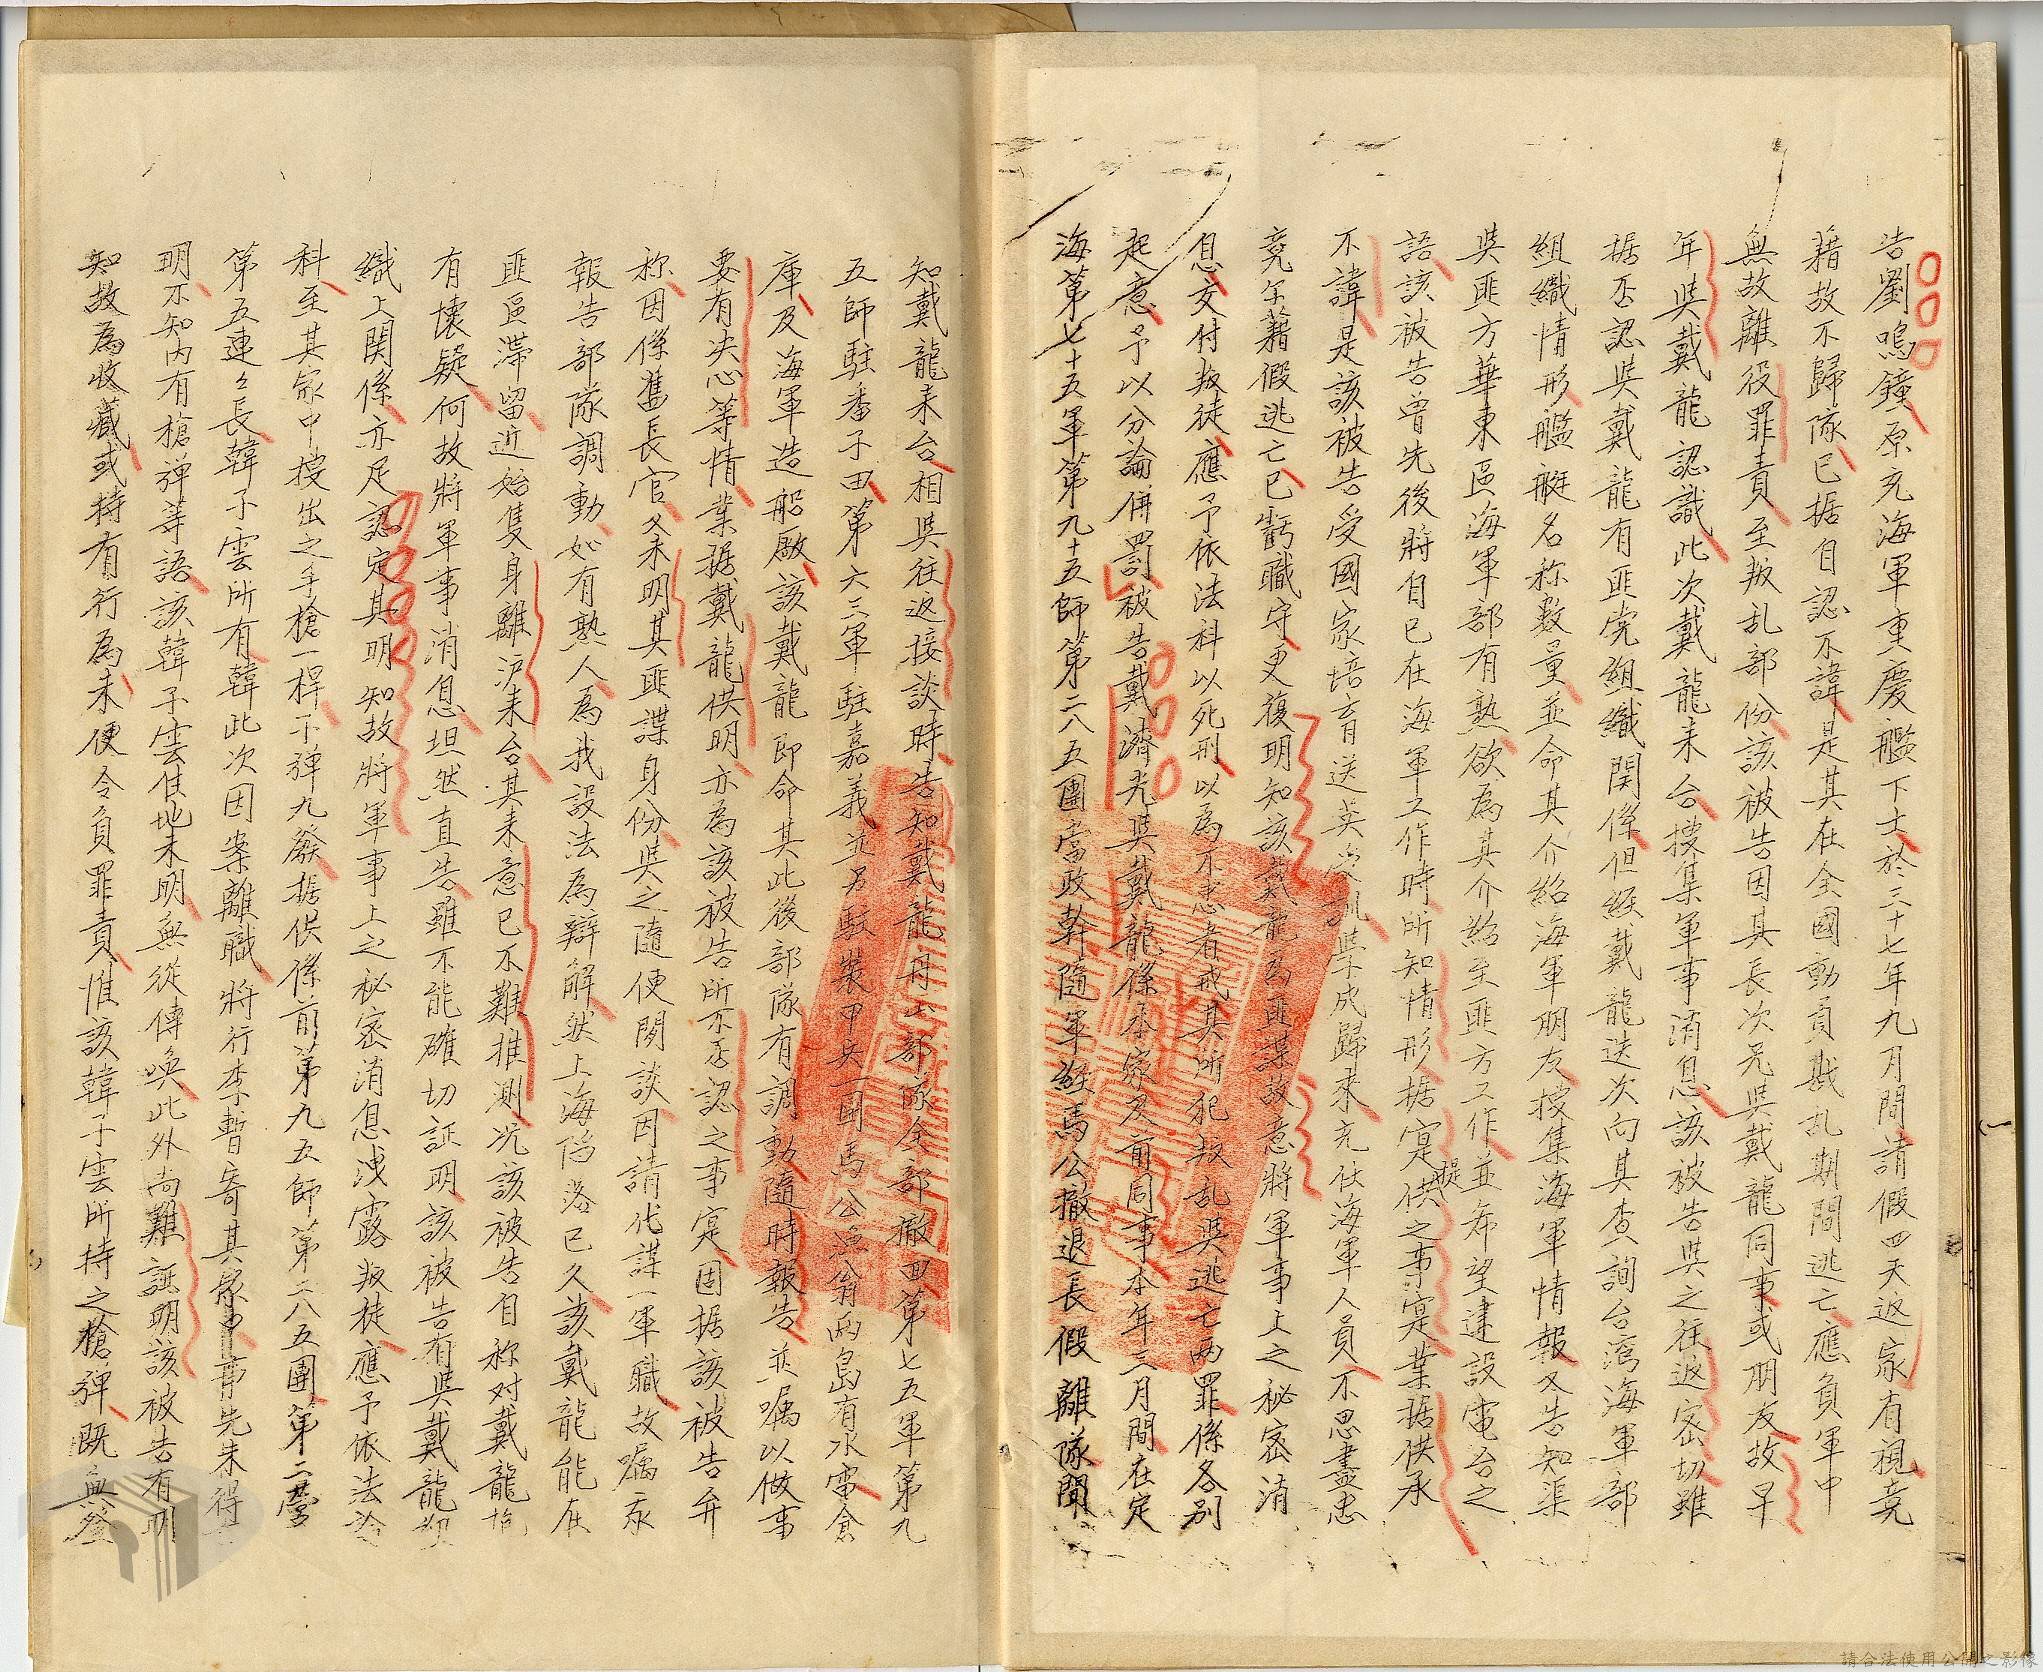 告劉鳴鐘原充海軍重慶艦下士於三十七年九月間請假四天返家省視竟
藉故不歸隊已据自認不諱是其在全國動員戡乱期間逃亡應負軍中
無故離役罪責至叛乱部份該被告因其長次兄與戴龍同事或朋友故早
年與戴龍認識此次戴龍來台搜集軍事消息該被告與之往返密切雖
据否認與戴龍有匪党組織関係但經戴龍迭次向其查詢台湾海軍部
組織情形艦艇名称数量並命其介紹海軍朋友搜集海軍情報又告知渠
與匪方華東區海軍部有熟欲為其介紹至匪方工作並希望建設電台之
語該被告曾先後將自己在海軍工作時所知情形据寔提供之事寔業据供承
不諱是該被告受國家培育送英受訓學成歸來充任海軍人員不思盡忠
竟乃藉假逃亡已虧職守更復明知該戴龍為匪諜故意將軍事上之秘密消
息交付叛徒應予依法科以死刑以為不忠者戒其所犯叛乱與逃亡两罪係各别
起意予以分論併罰被告戴濟光與戴龍係本家及前同事本年三月間在定
海第七十五軍第九十五師第二八五團當政幹隨軍經馬公撤退長假離隊聞
知戴龍來台相與往返接談時告知戴龍舟山部隊全部撤回第七五軍第九
五師駐番子田第六三軍駐嘉義並另駐裝甲兵一團馬公漁翁两島有水雷倉
庫及海軍造船廠該戴龍即命其此後部隊有調動隨時報告並嘱以做事
要有决心等情業据戴龍供明亦為該被告所不否認之事寔固据该被告弁
称因係舊長官又未明其匪諜身份與之隨便閒談因請代謀一軍職故嘱派
報告部隊調動如有熟人為我設法為辯解然上海陷落已久該戴龍能在
匪區滯留近始隻身離沪來台其來意已不難推測况該被告自称对戴龍抱
有懷疑何故將軍事消息坦然直告雖不能確切証明該被告有與戴龍

織上関係亦足認定其明知故將軍事上之秘密消息洩露叛徒應予依法論
科至其家中搜出之手槍一桿子弹九發据供係前第九五師第二八五團第二營
第五連連長韓子雲所有韓此次因案離職將行李暫寄其家中事先未得
明不知內有槍弹等語該韓子雲住地未明無從傳喚此外尚難証明該被告有明
知故為收藏或持有行為未便令負罪責惟該韓子雲所持之槍弹既無發
請合法使用公開之影像